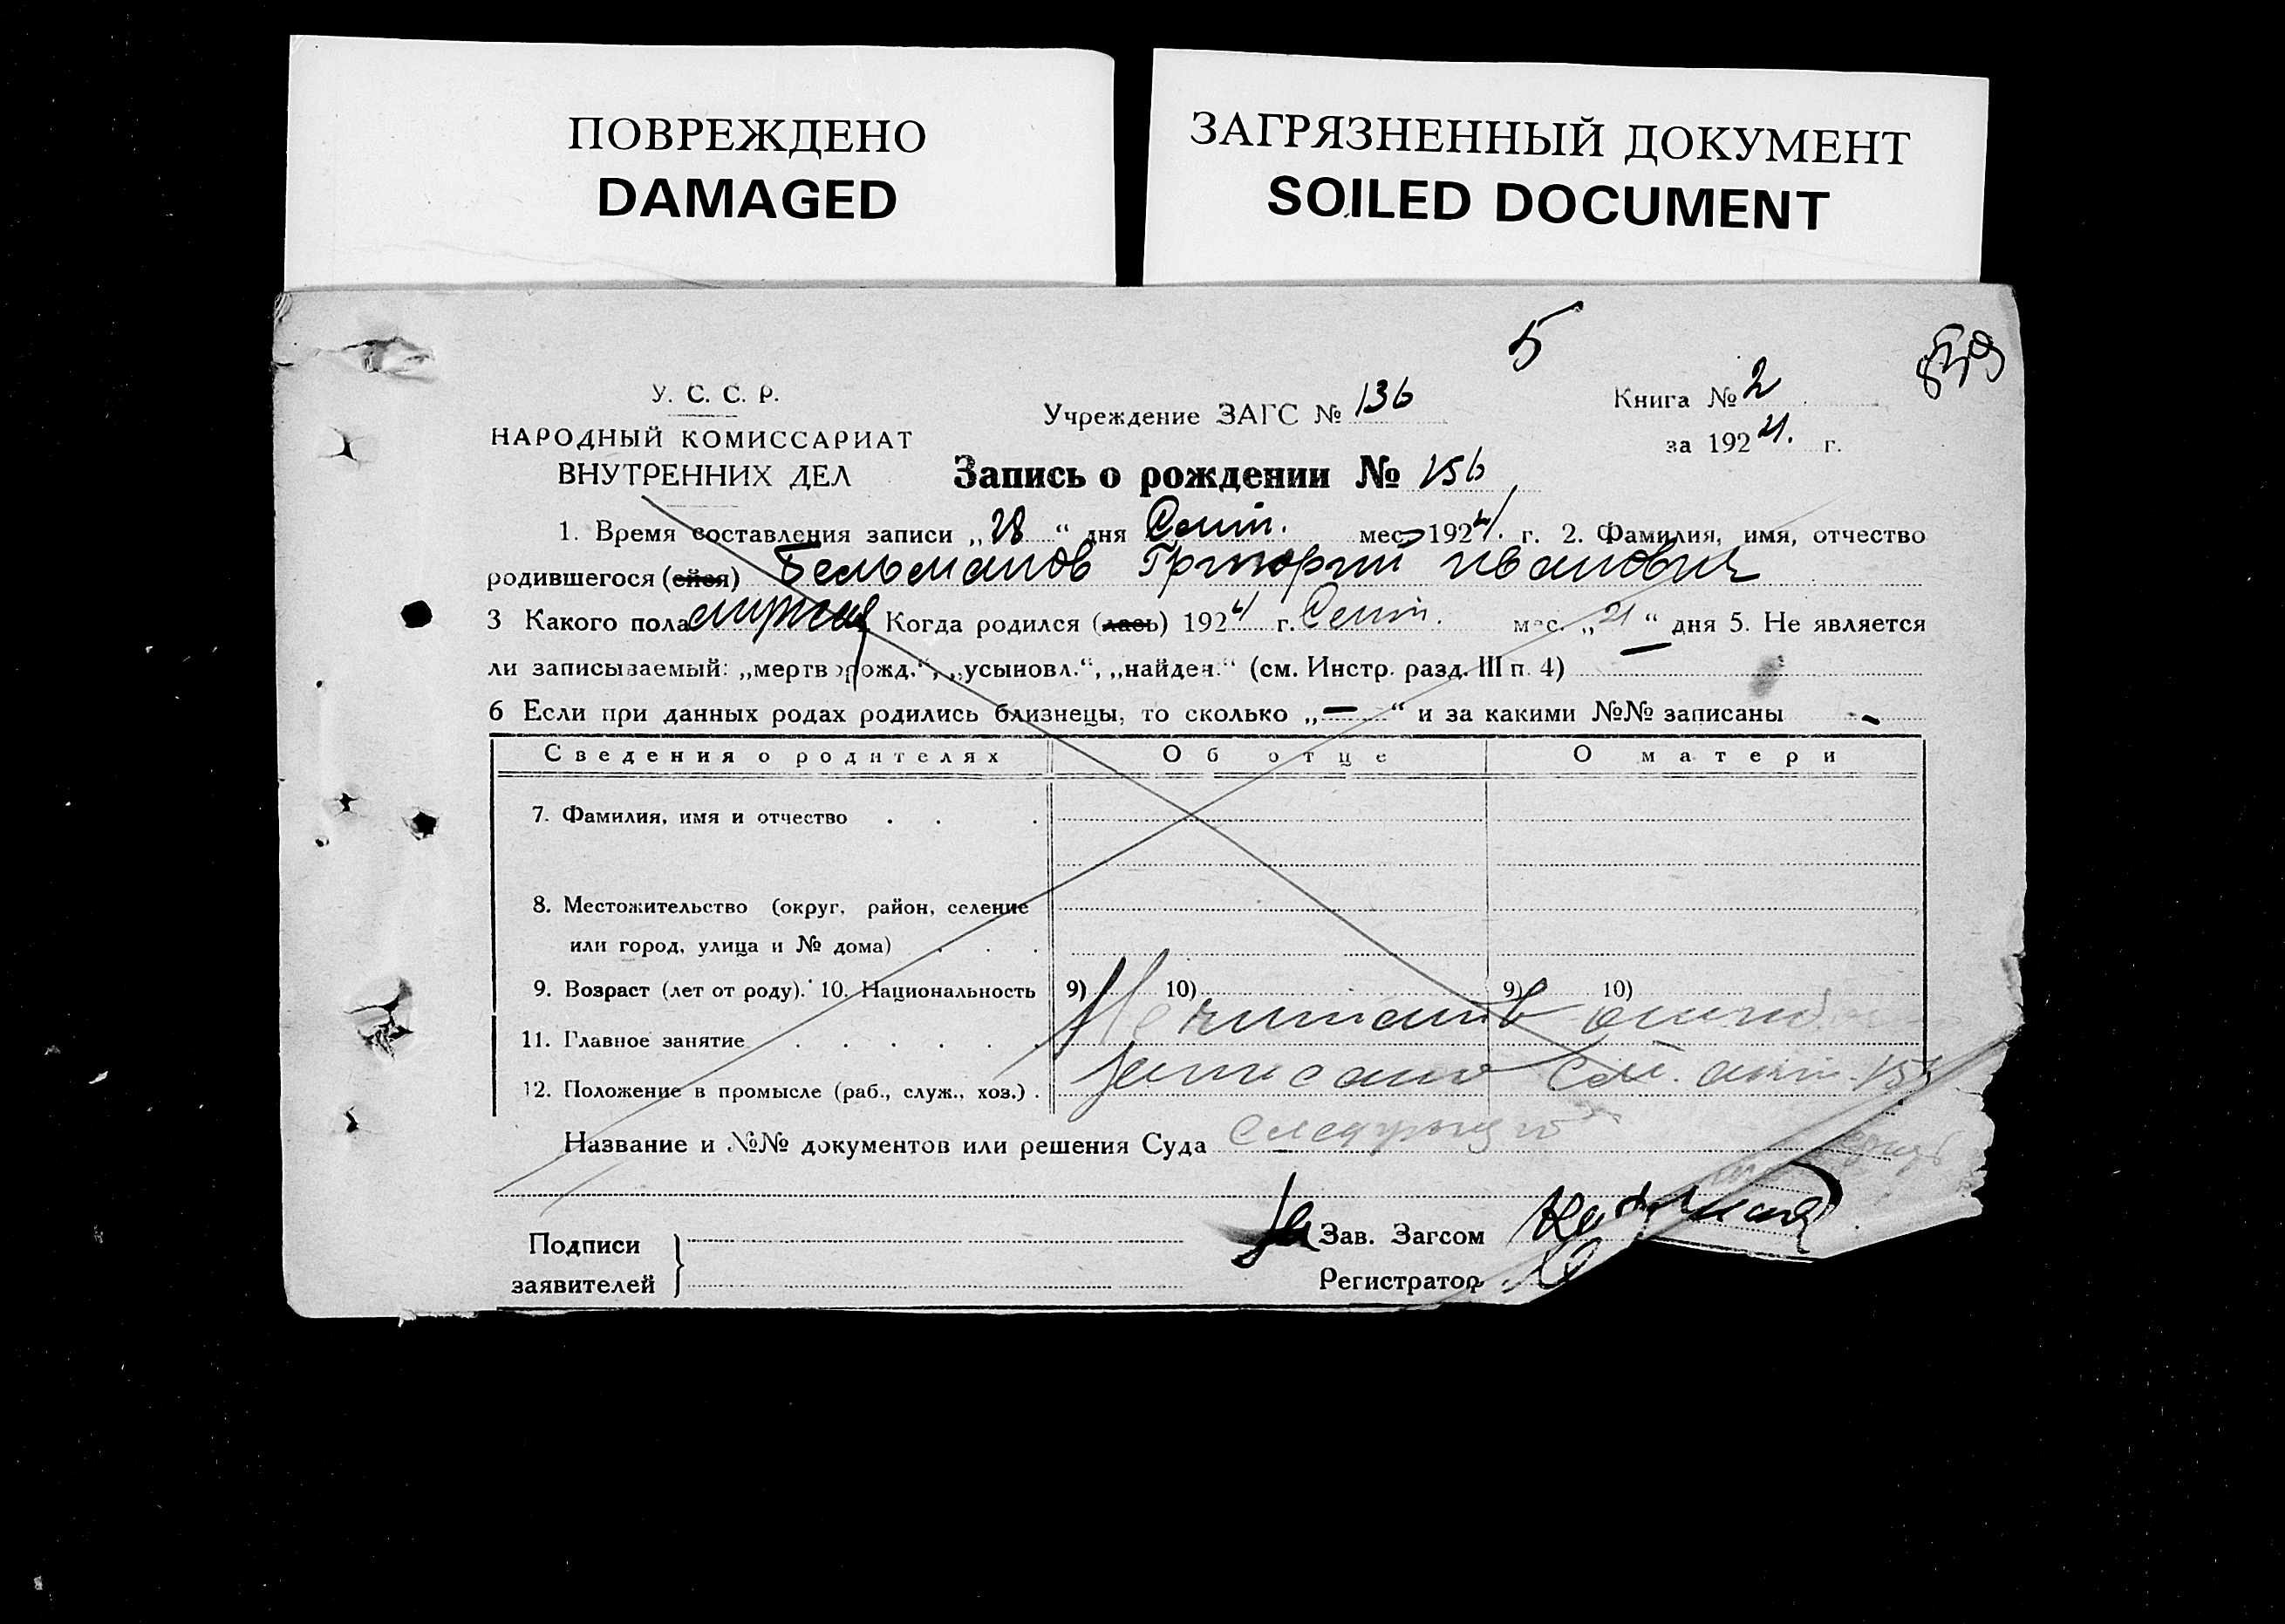 ПОВРЕЖДЕНО
DAMAGED
ЗАГРЯЗНЕННЫЙ ДОКУМЕНТ
SOILED DOCUMENT
5
У. С. С. Р.
НАРОДНЫЙ КОМИССАРИАТ
ВНУТРЕННИХ ДЕЛ
Учреждение ЗАГС № 136
Книга № 2
за 1924. г.
Запись о рождении № 156
1. Время составления записи „28“ дня Сент. мес. 1924. г. 2. Фамилия, имя, отчество
родившегося (ейся) Бельманов Григорий Иванович
3 Какого пола Когда родился (лась) 1924 г. Сент. мес. „21“ дня 5. Не является
ли записываемый: „мертворожд.“, „усыновл.“, „найден.“ (см. Инстр. разд. III п. 4) —
6 Если при данных родах родились близнецы, то сколько „—“ и за какими №№ записаны -
Сведения о родителях Об отце О матери
7. Фамилия, имя и отчество . . .
8. Местожительство (округ, район, селение
или город, улица и № дома) . . .
9. Возраст (лет от роду). 10. Национальность 9) 10) 9) 10)
Не читать
11. Главное занятие . . . . . .
записано см. акт.
12. Положение в промысле (раб., служ., хоз.) .
Название и №№ документов или решения Суда
Подписи
заявителей
За Зав. Загсом
Регистратор